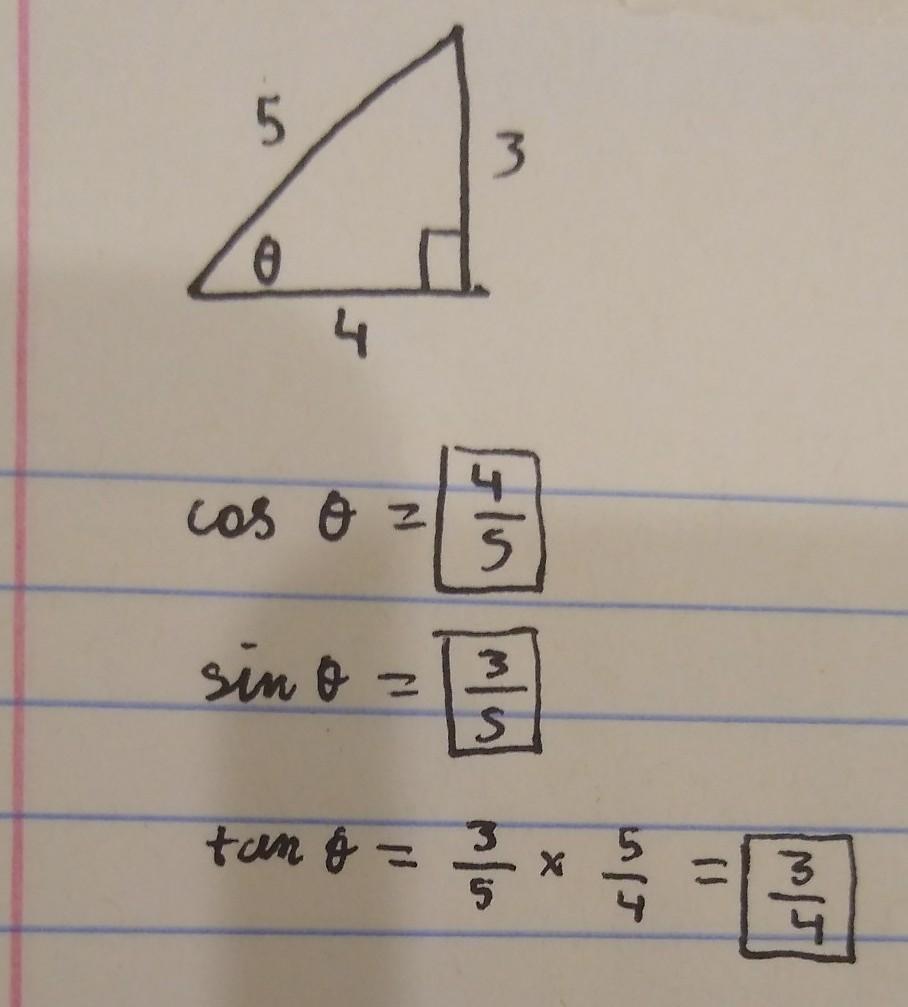 5
3
θ
4
cos θ = 4/5
sin θ = 3/5
tan θ = 3/5 × 5/4 = 3/4